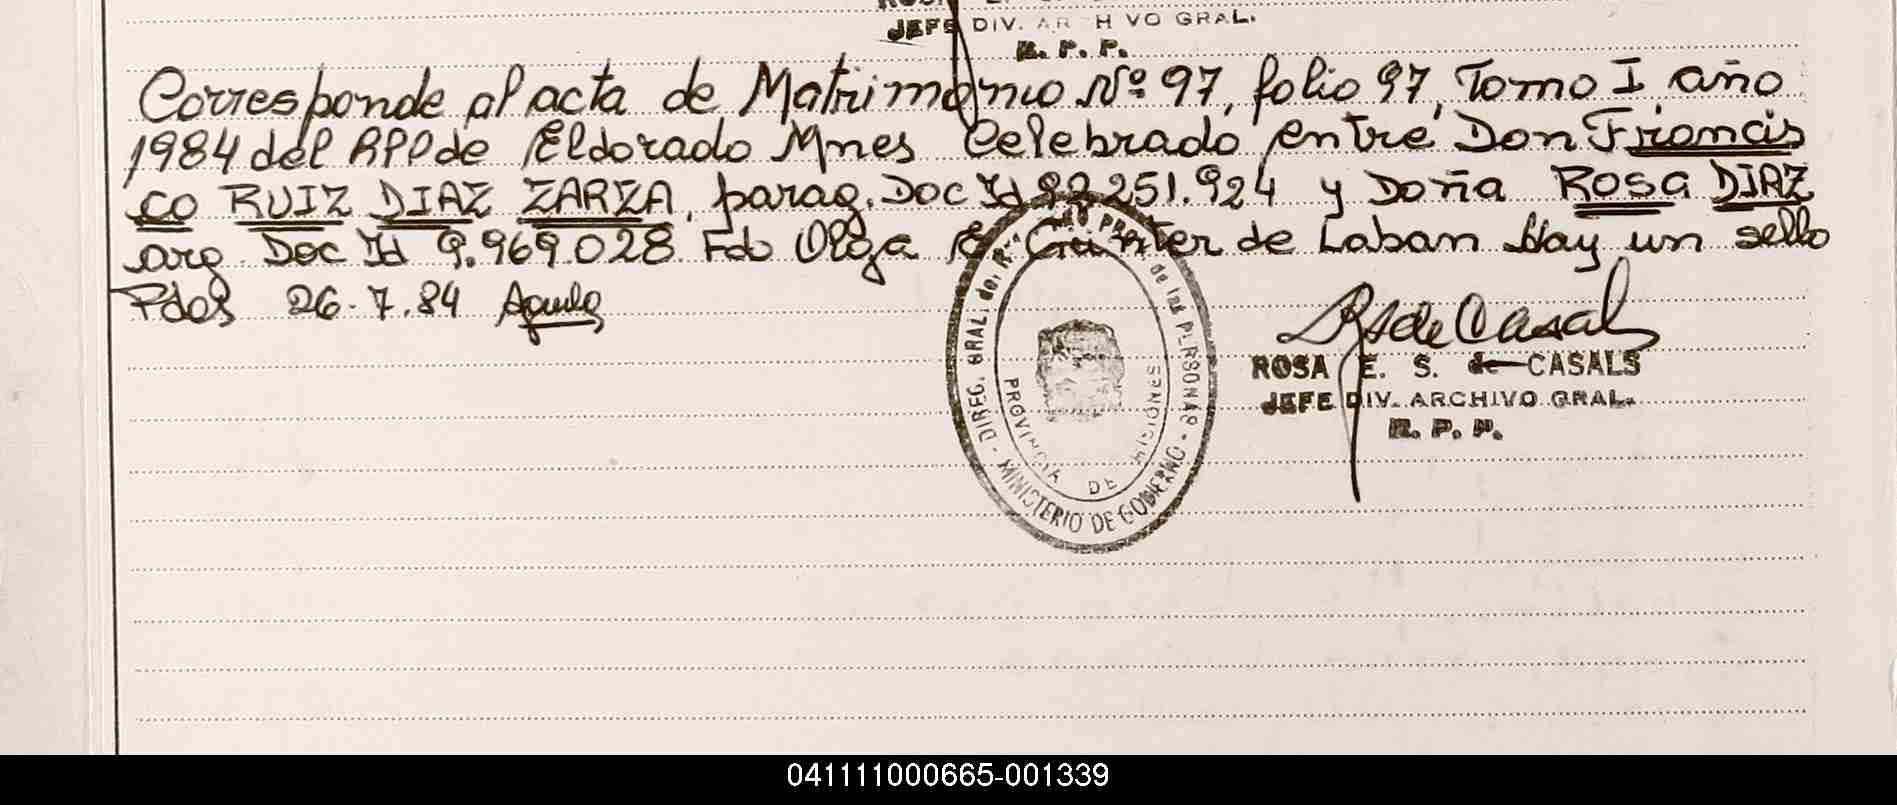 JEFE DIV. ARCHIVO GRAL.
R. P. P.
Corresponde al acta de Matrimonio Nº 97, folio 97, Tomo I, año
1984 del RPP de Eldorado Mnes Celebrado entre Don Francis
co RUIZ DIAZ ZARZA, parag. Doc Id 92.251.924 y Doña ROSA DIAZ
arg. Doc Id 9.969.028 Fdo Olga de Laban Hay un sello
Pdas 26.7.84
DIREC. GRAL. del Rº de las PERSONAS - MINISTERIO DE GOBIERNO -
PROVINCIA DE MISIONES
RsdeCasals
ROSA E. S. de CASALS
JEFE DIV. ARCHIVO GRAL.
R. P. P.
041111000665-001339